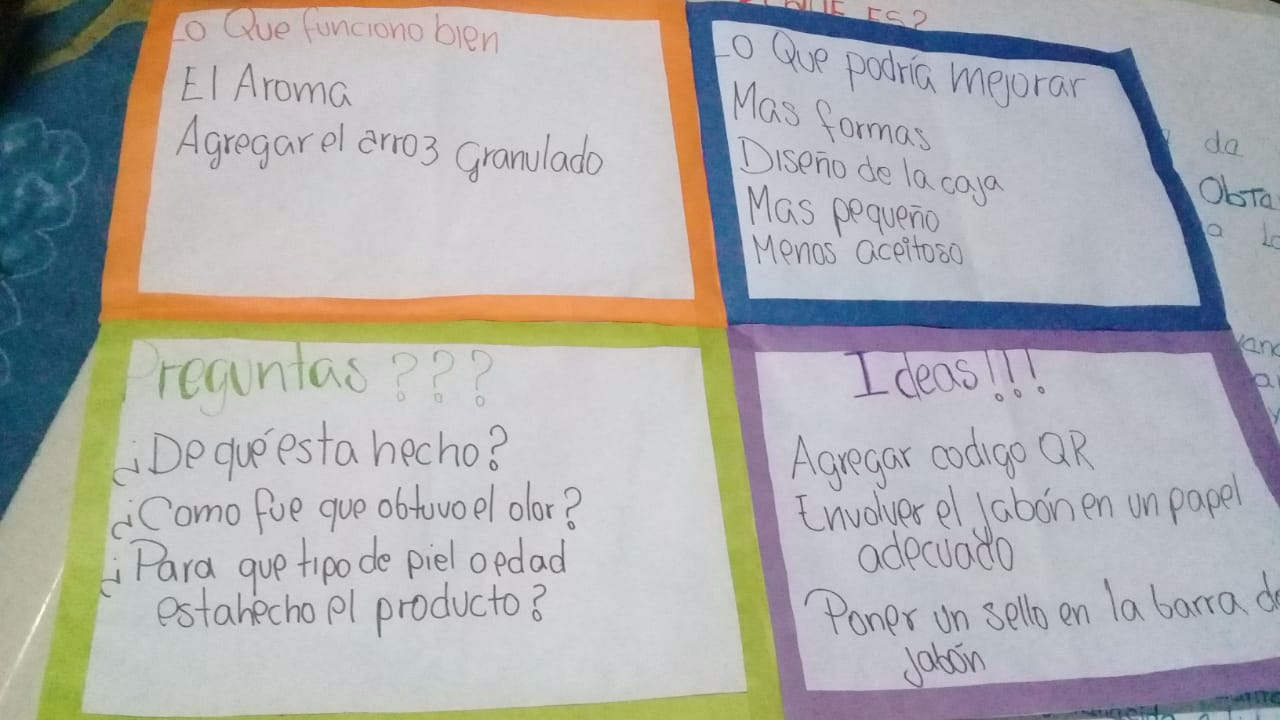 Lo Que funciono bien
El Aroma
Agregar el arroz Granulado
QUE ES?
Lo Que podría mejorar
Mas formas
Diseño de la caja
Mas pequeño
Menos aceitoso
da
Preguntas ???
¿De qué esta hecho?
¿Como fue que obtuvo el olor?
¿Para que tipo de piel o edad
esta hecho el producto?
Ideas!!!
Agregar codigo QR
Envolver el Jabón en un papel
adecuado
Poner un sello en la barra de
Jabón